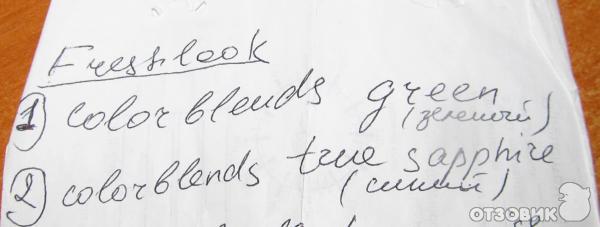 Freshlook
1) colorblends green
(зеленый)
2) colorblends true sapphire
(синий)
ОТЗОВИК